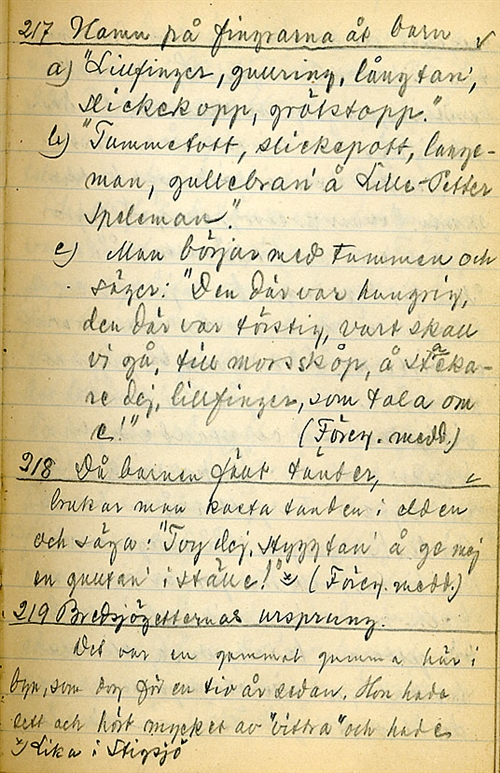 217 Namn på fingrarna åt barn
a) "Lillfinger, gullring, långtan',
slickekopp, grötstopp."
b) "Tummetott, slickepott, lange-
man, gullebran' å Lille-Petter
Speleman".
c) Man börjar med tummen och
säger: "Den där var hungrig,
den där var törstig, vart skall
vi gå, till morsskåp, å stacka-
re dej, lillfinger, som tala om
e!" (Föreg. medd.)
218 Då barnen fäller tänder,
brukar man kasta tanden i elden
och säga: "Tvy dej, styggtan' å ge mej
en gulltan' i ställe!" x) (Föreg. medd.)
219 Bredsjögetternas ursprung.
Det var en gammal gumma här i
byn, som dog för en tio år sedan. Hon hade
sett och hört mycket av "vittra" och hade
x) Lika i Stigsjö